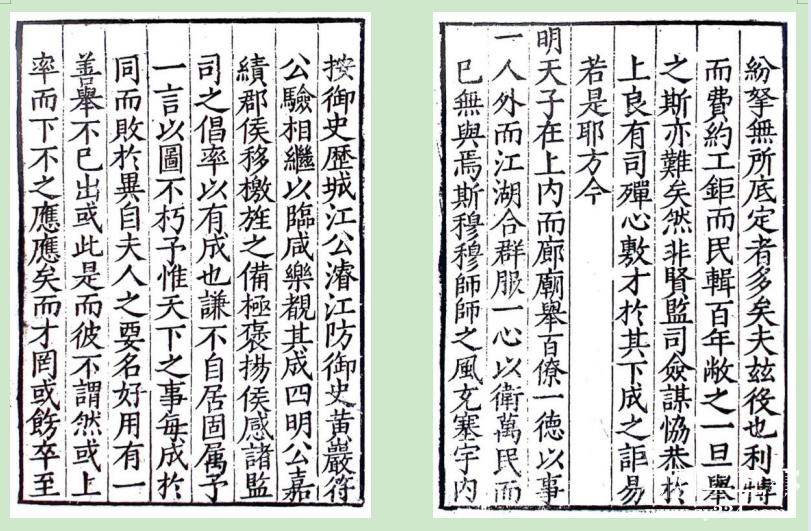 按御史歷城江公濬江防御史黃巖符
公驗相繼以臨咸樂觀其成四明公嘉
績郡侯移檄旌之備極褒揚侯感諸監
司之倡率以有成也謙不自居固属予
一言以圖不朽予惟天下之事每成於
同而敗於異自夫人之要名好用有一
善舉不已出或此是而彼不謂然或上
率而下不之應應矣而才罔或飭卒至
紛拏無所底定者多矣夫茲役也利博
而費約工鉅而民輯百年敝之一旦舉
之斯亦難矣然非賢監司僉謀恊恭於
上良有司殫心敷才於其下成之詎易
若是耶方今
明天子在上內而廊廟舉百僚一德以事
一人外而江湖合群服一心以衛萬民而
已無與焉斯穆穆師師之風充塞宇內